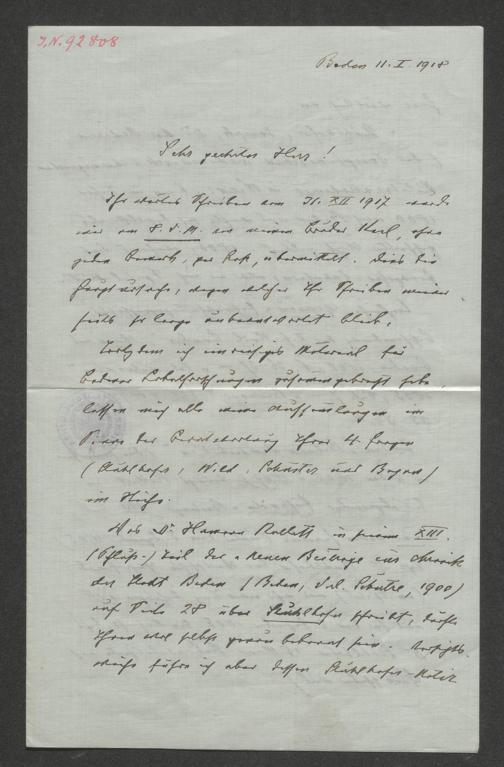 J.N. 92808
Baden 11. I. 1918
Sehr geehrter Herr!
Ihr wertes Schreiben vom 31. XII 1917 wurde
mir am 8. d. M. von meinem Bruder Karl, ohne
jeden Bemerk, per Post, übermittelt. Dies die
Hauptursache, wegen welcher Ihr Schreiben meiner-
seits so lange unbeantwortet blieb.
Trotzdem ich ein riesiges Material für
Badener Lokalforschungen zusammengebracht habe,
lassen mich alle meine Aufsammlungen im
Punkte der Beantwortung Ihrer 4. Fragen
(Stuhlhofer, Wild, Schuster und Bogner)
im Stiche.
Was Dr. Hermann Rollett in seinem XIII.
(Schluß-) Teil der "Neuen Beiträge zur Chronik
der Stadt Baden (Baden, Verl. Schütze, 1900)
auf Seite 28 über Stuhlhofer schreibt, dürfte
Ihnen wol selbst genau bekannt sein.
führe ich aber dessen Stuhlhofer-Notiz